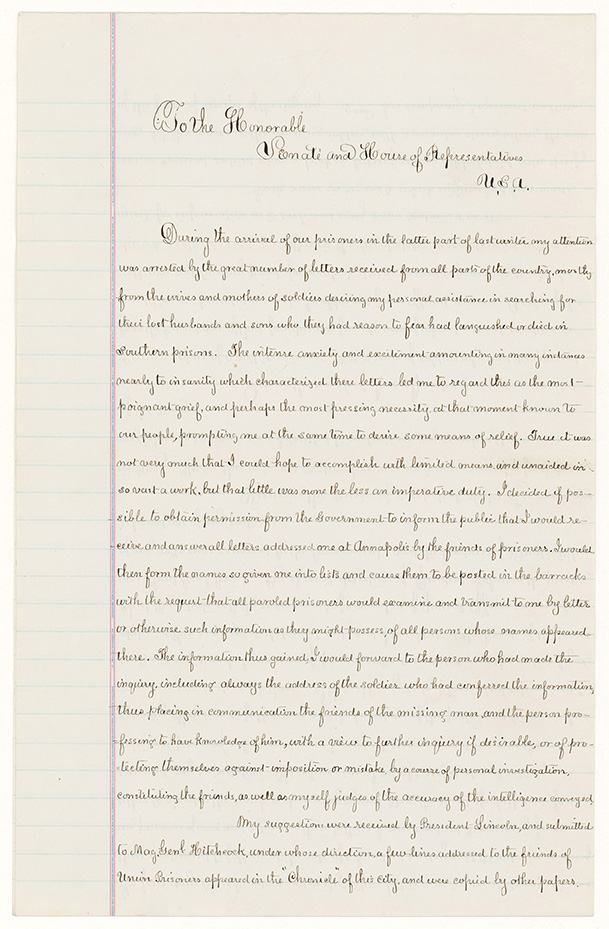 To the Honorable
Senate and House of Representatives
U.S.A.
During the arrival of our prisoners in the latter part of last winter my attention
was arrested by the great number of letters received from all parts of the country, mostly
from the wives and mothers of soldiers desiring my personal assistance in searching for
their lost husbands and sons who they had reason to fear had languished or died in
Southern prisons. The intense anxiety and excitement amounting in many instances
nearly to insanity which characterized these letters led me to regard this as the most
poignant grief, and perhaps the most pressing necessity, at that moment known to
our people, prompting me at the same time to desire some means of relief. True it was
not very much that I could hope to accomplish with limited means, and unaided in
so vast a work, but that little was none the less an imperative duty. I decided if pos-
sible to obtain permission from the Government to inform the public that I would re-
ceive and answer all letters addressed me at Annapolis by the friends of prisoners. I would
then form the names so given me into lists and cause them to be posted in the barracks
with the request that all paroled prisoners would examine and transmit to me by letter
or otherwise such information as they might possess, of all persons whose names appeared
there. The information thus gained, I would forward to the person who had made the
inquiry, including always the address of the soldier who had conferred the information,
thus placing in communication the friends of the missing man, and the person pro-
fessing to have knowledge of him, with a view to further inquiry if desirable, or of pro-
tecting themselves against imposition or mistake, by a course of personal investigation,
constituting the friends, as well as myself judges of the accuracy of the intelligence conveyed.
My suggestions were received by President Lincoln, and submitted
to Maj. Genl. Hitchcock, under whose direction, a few lines addressed to the friends of
Union Prisoners appeared in the "Chronicle" of this city, and were copied by other papers.